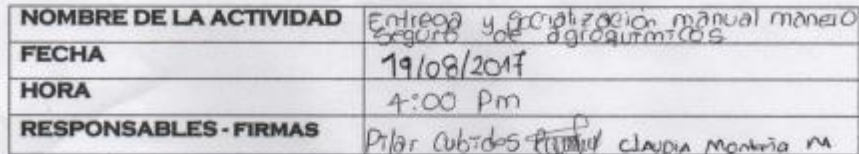 NOMBRE DE LA ACTIVIDAD Entrega y socialización manual manejo
seguro de agroquimicos
FECHA 19/08/2017
HORA 4:00 Pm
RESPONSABLES - FIRMAS Pilar Cubides CLAUDIA M